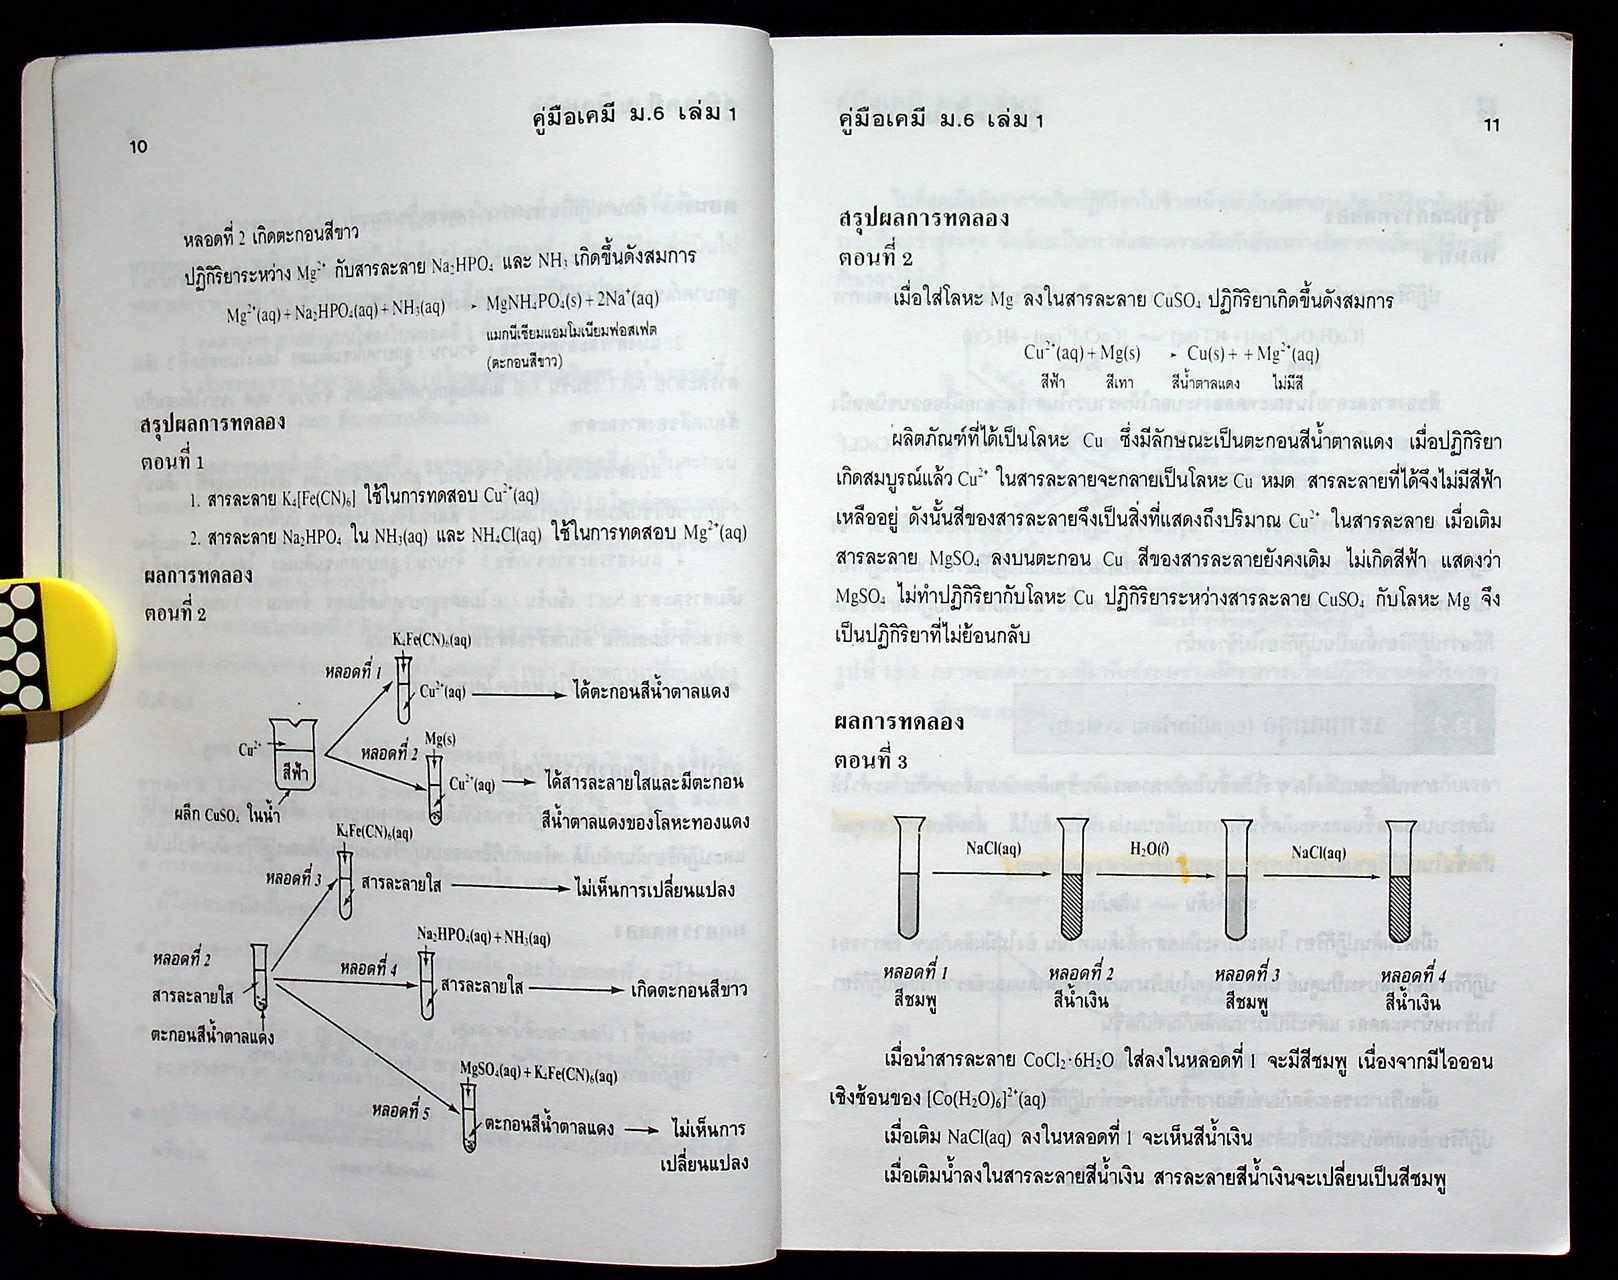 คู่มือเคมี ม.6 เล่ม 1
10
หลอดที่ 2 เกิดตะกอนสีขาว
ปฏิกิริยาระหว่าง Mg²⁺ กับสารละลาย Na₂HPO₄ และ NH₃ เกิดขึ้นดังสมการ
Mg²⁺(aq) + Na₂HPO₄(aq) + NH₃(aq) → MgNH₄PO₄(s) + 2Na⁺(aq)
แมกนีเซียมแอมโมเนียมฟอสเฟต
(ตะกอนสีขาว)
สรุปผลการทดลอง
ตอนที่ 1
1. สารละลาย K₄[Fe(CN)₆] ใช้ในการทดสอบ Cu²⁺(aq)
2. สารละลาย Na₂HPO₄ ใน NH₃(aq) และ NH₄Cl(aq) ใช้ในการทดสอบ Mg²⁺(aq)
ผลการทดลอง
ตอนที่ 2
K₄Fe(CN)₆(aq)
หลอดที่ 1
Cu²⁺(aq) → ได้ตะกอนสีน้ำตาลแดง
Cu²⁺
สีฟ้า
ผลึก CuSO₄ ในน้ำ
หลอดที่ 2
Mg(s)
Cu²⁺(aq) → ได้สารละลายใสและมีตะกอน
สีน้ำตาลแดงของโลหะทองแดง
K₄Fe(CN)₆(aq)
หลอดที่ 3
สารละลายใส → ไม่เห็นการเปลี่ยนแปลง
Na₂HPO₄(aq) + NH₃(aq)
หลอดที่ 2
หลอดที่ 4
สารละลายใส
สารละลายใส → เกิดตะกอนสีขาว
ตะกอนสีน้ำตาลแดง
MgSO₄(aq) + K₄Fe(CN)₆(aq)
หลอดที่ 5
ตะกอนสีน้ำตาลแดง → ไม่เห็นการ
เปลี่ยนแปลง
คู่มือเคมี ม.6 เล่ม 1
11
สรุปผลการทดลอง
ตอนที่ 2
เมื่อใส่โลหะ Mg ลงในสารละลาย CuSO₄ ปฏิกิริยาเกิดขึ้นดังสมการ
Cu²⁺(aq) + Mg(s) → Cu(s) + + Mg²⁺(aq)
สีฟ้า สีเทา สีน้ำตาลแดง ไม่มีสี
ผลิตภัณฑ์ที่ได้เป็นโลหะ Cu ซึ่งมีลักษณะเป็นตะกอนสีน้ำตาลแดง เมื่อปฏิกิริยา
เกิดสมบูรณ์แล้ว Cu²⁺ ในสารละลายจะกลายเป็นโลหะ Cu หมด สารละลายที่ได้จึงไม่มีสีฟ้า
เหลืออยู่ ดังนั้นสีของสารละลายจึงเป็นสิ่งที่แสดงถึงปริมาณ Cu²⁺ ในสารละลาย เมื่อเติม
สารละลาย MgSO₄ ลงบนตะกอน Cu สีของสารละลายยังคงเดิม ไม่เกิดสีฟ้า แสดงว่า
MgSO₄ ไม่ทำปฏิกิริยากับโลหะ Cu ปฏิกิริยาระหว่างสารละลาย CuSO₄ กับโลหะ Mg จึง
เป็นปฏิกิริยาที่ไม่ย้อนกลับ
ผลการทดลอง
ตอนที่ 3
NaCl(aq) H₂O(l) NaCl(aq)
หลอดที่ 1 หลอดที่ 2 หลอดที่ 3 หลอดที่ 4
สีชมพู สีน้ำเงิน สีชมพู สีน้ำเงิน
เมื่อนำสารละลาย CoCl₂·6H₂O ใส่ลงในหลอดที่ 1 จะมีสีชมพู เนื่องจากมีไอออน
เชิงซ้อนของ [Co(H₂O)₆]²⁺(aq)
เมื่อเติม NaCl(aq) ลงในหลอดที่ 1 จะเห็นสีน้ำเงิน
เมื่อเติมน้ำลงในสารละลายสีน้ำเงิน สารละลายสีน้ำเงินจะเปลี่ยนเป็นสีชมพู